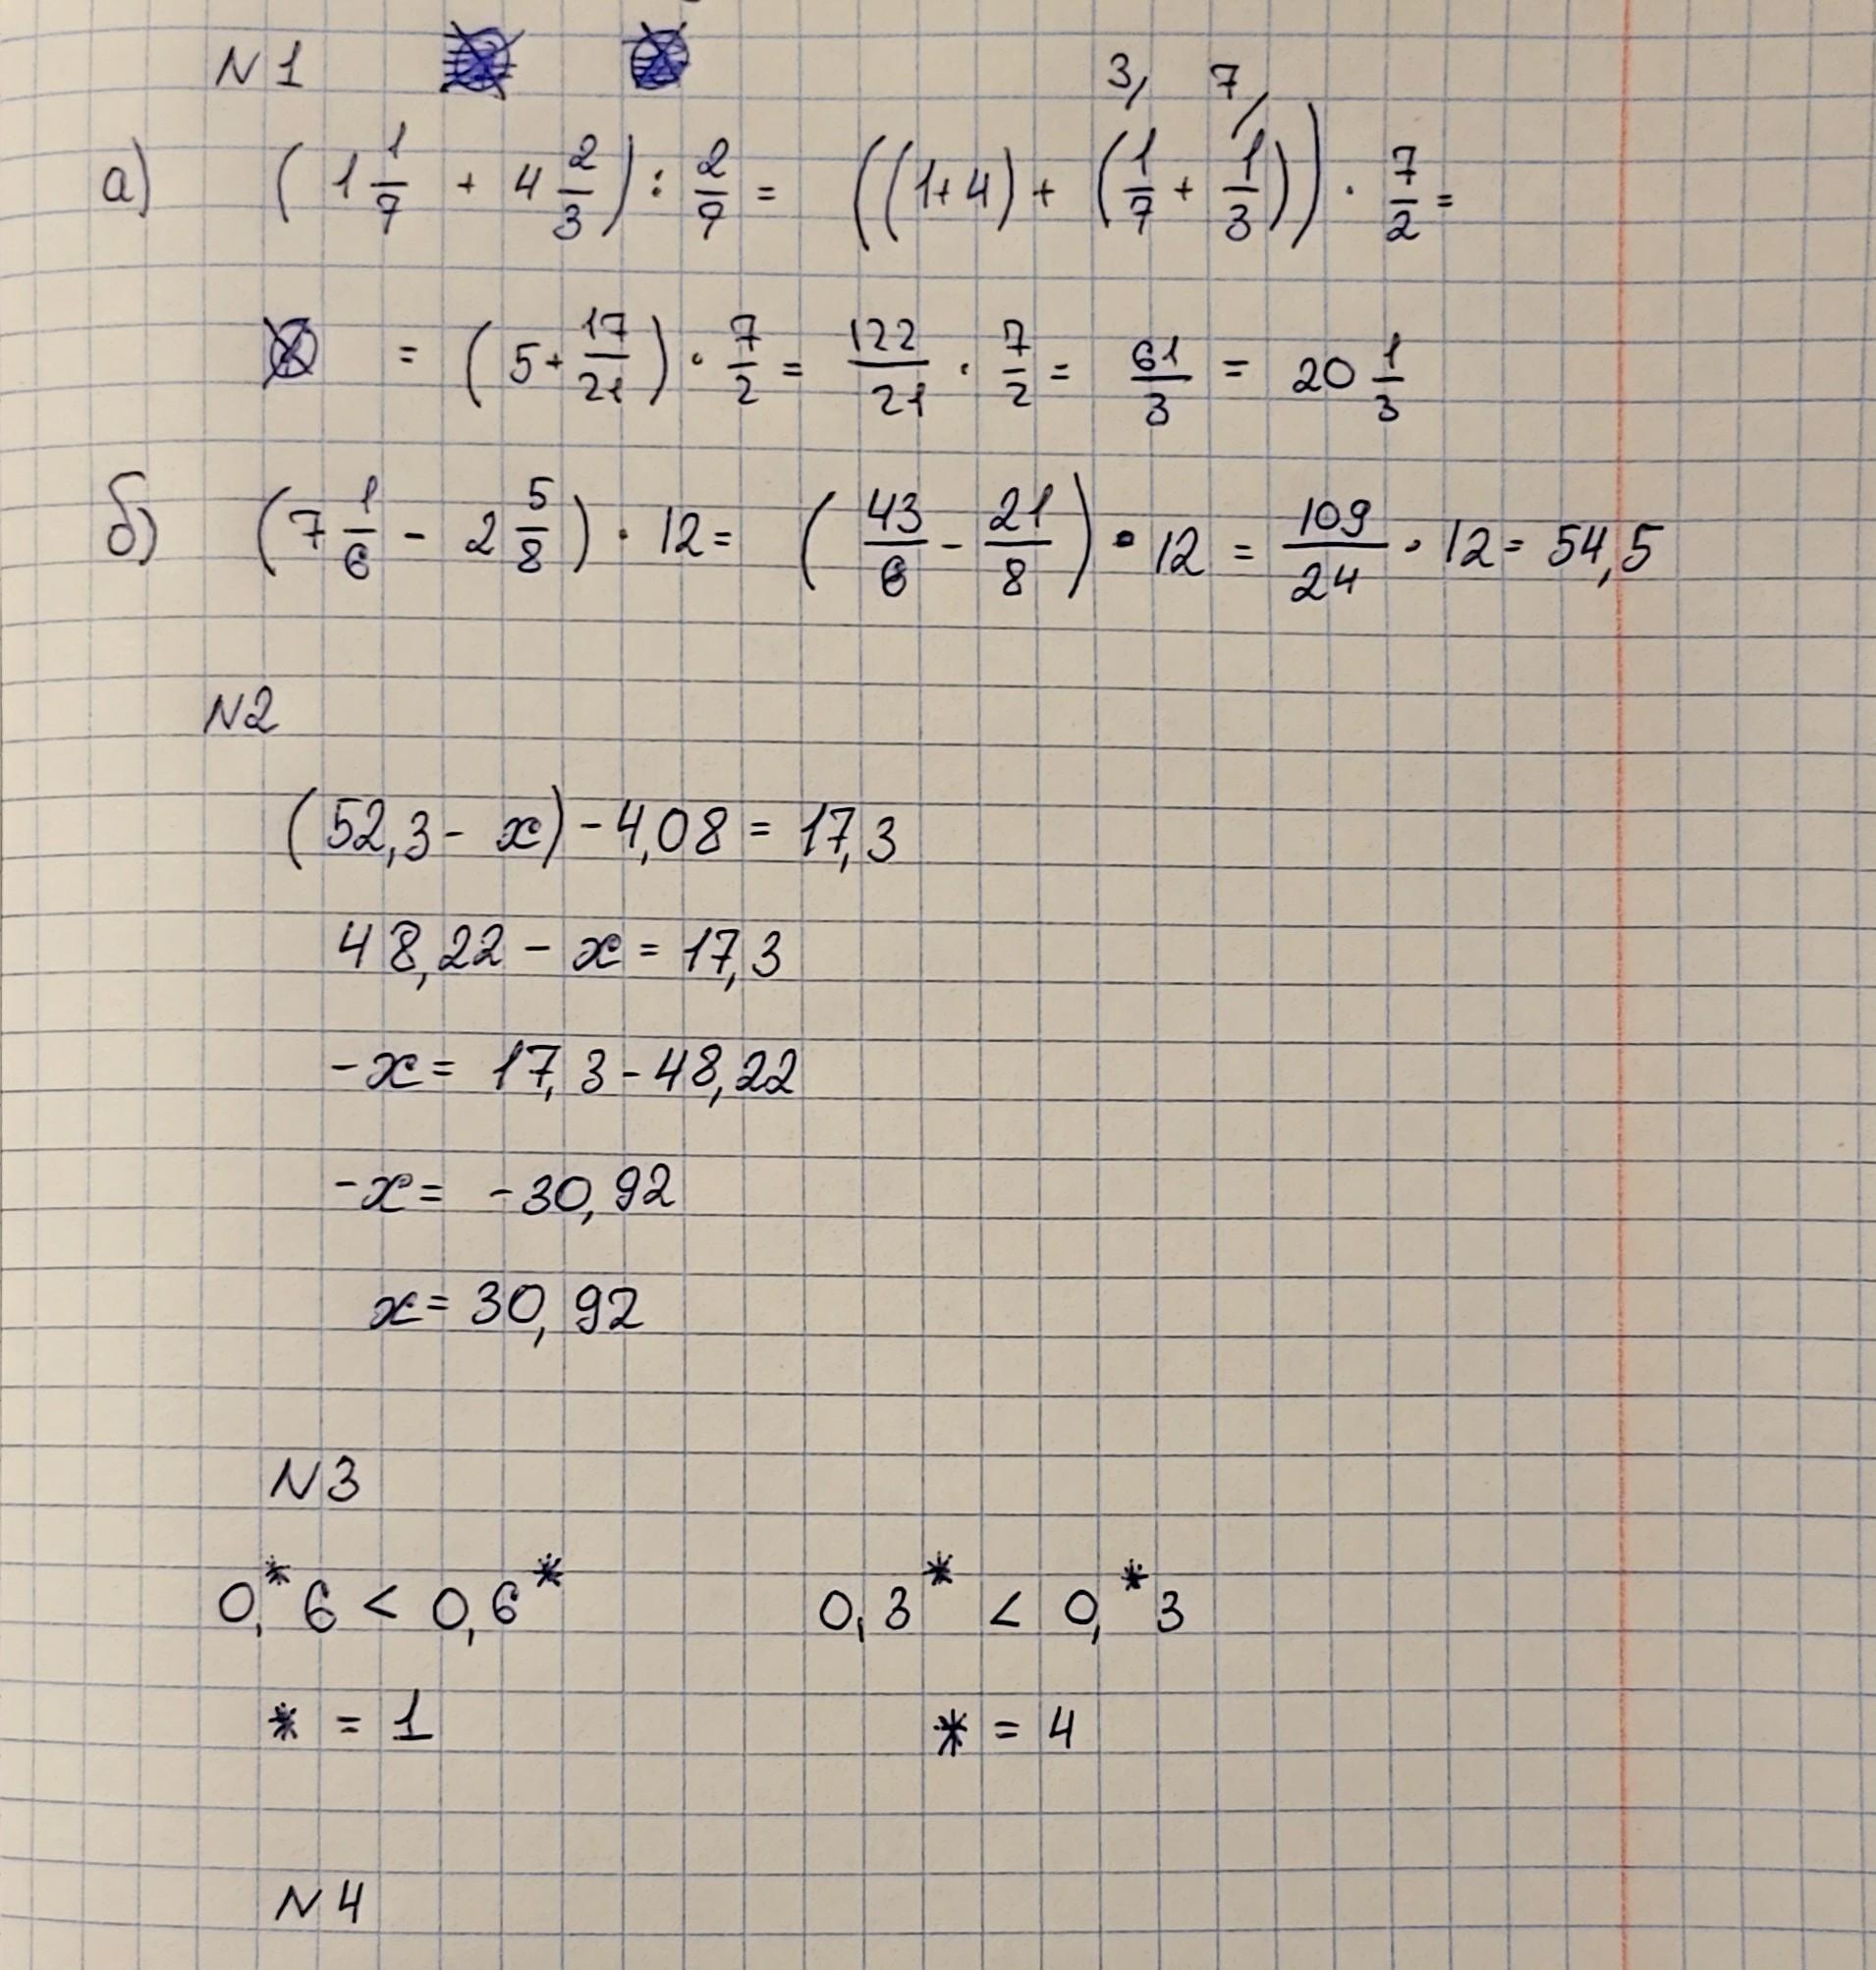 N1
3 7
а) (1 1/7 + 4 2/3) : 2/7 = ((1+4) + (1/7 + 1/3)) · 7/2 =
= (5 + 17/21) · 7/2 = 122/21 · 7/2 = 61/3 = 20 1/3
б) (7 1/6 - 2 5/8) · 12 = (43/6 - 21/8) · 12 = 109/24 · 12 = 54,5
N2
(52,3 - x) - 4,08 = 17,3
48,22 - x = 17,3
-x = 17,3 - 48,22
-x = -30,92
x = 30,92
N3
0,*6 < 0,6* 0,3* < 0,*3
* = 1 * = 4
N4